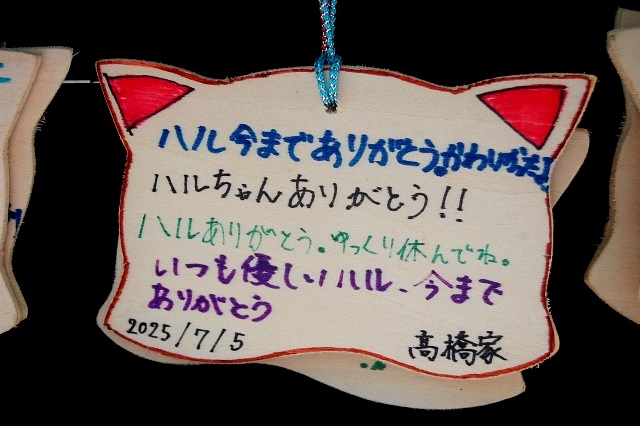 ハル今までありがとう。かわいかったよ
ハルちゃんありがとう!!
ハルありがとう。ゆっくり休んでね。
いつも優しいハル、今まで
ありがとう
2025/7/5
高橋家